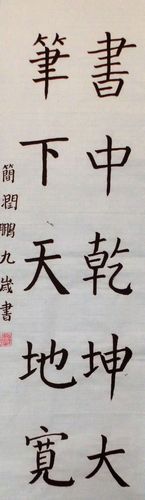 書中乾坤大
筆下天地寬
簡潤鵬九歲書